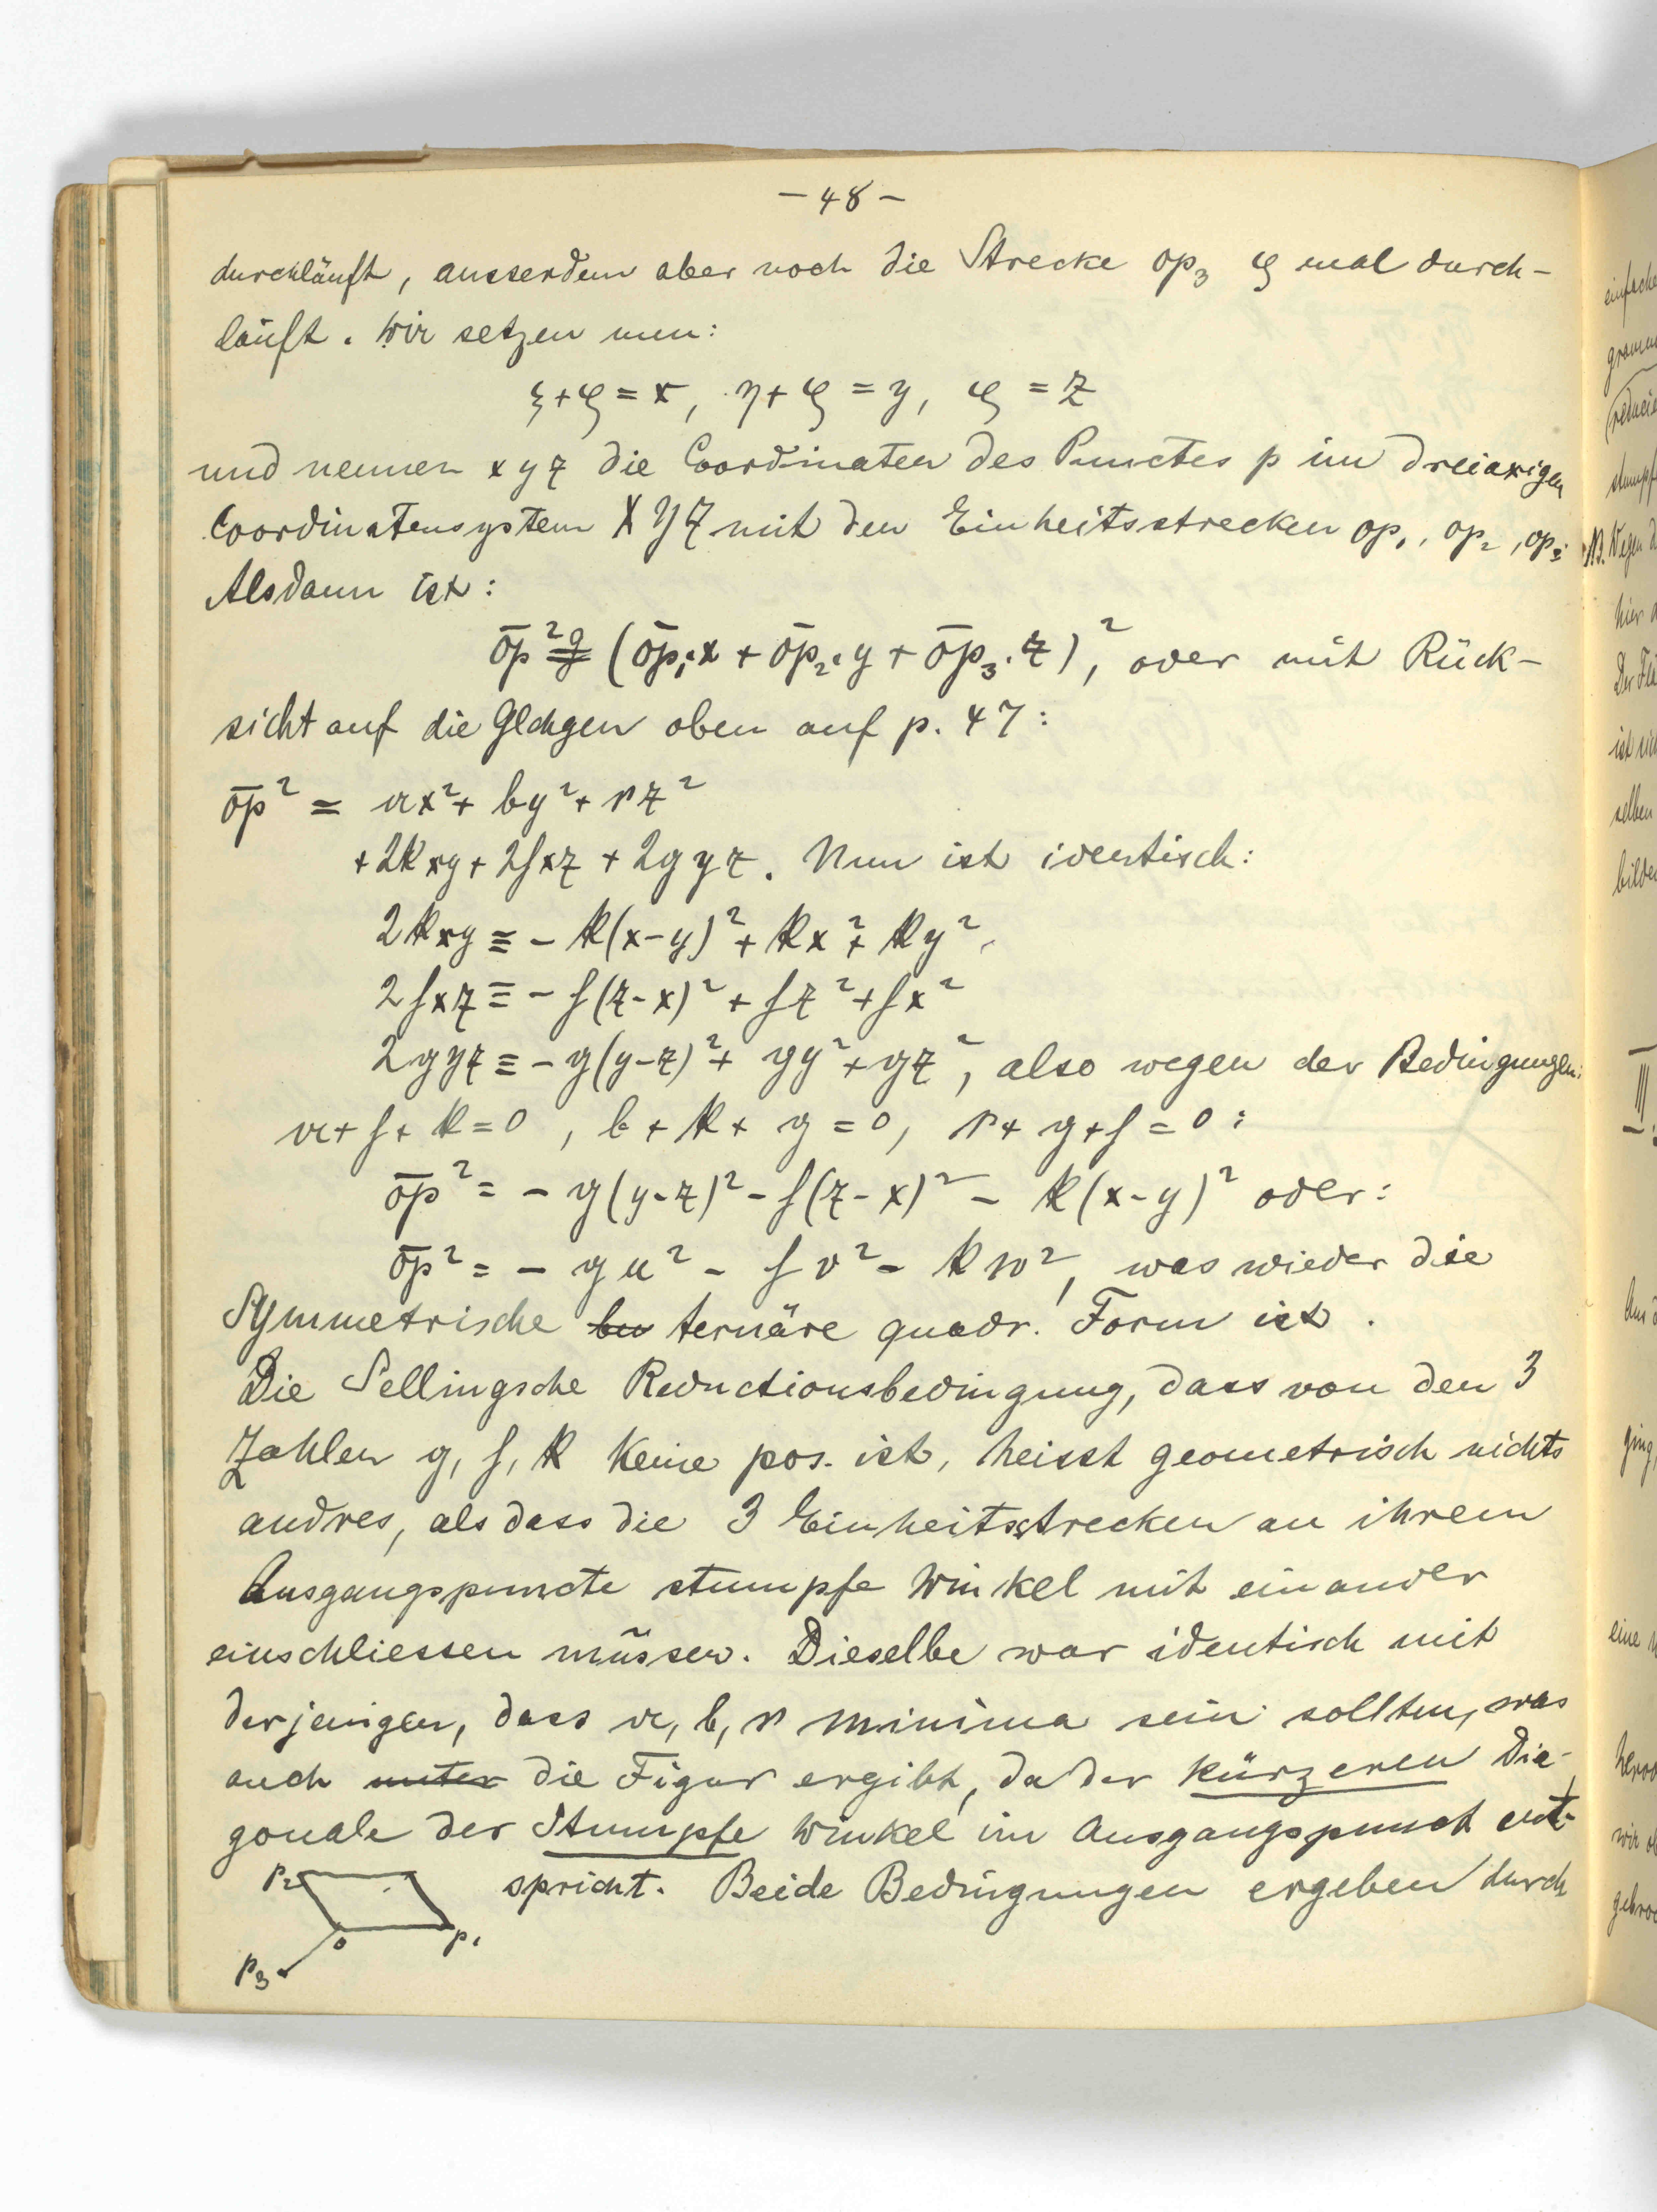 – 48 –
durchläuft, ausserdem aber noch die Strecke op₃ ζ mal durch-
läuft. Wir setzen nun:
ξ+ζ = x, η+ζ = y, ζ = z
und nennen x y z die Coordinaten des Punctes p im dreiaxigen
Coordinatensystem X Y Z mit den Einheitsstrecken op₁, op₂, op₃.
Alsdann ist:
o̅p̅² = (o̅p̅₁·x + o̅p̅₂·y + o̅p̅₃·z)², oder mit Rück-
sicht auf die Glchgen oben auf p. 47:
o̅p̅² = ax² + by² + cz²
+ 2kxy + 2fxz + 2gyz. Nun ist identisch:
2kxy ≡ – k(x–y)² + kx² + ky²,
2fxz ≡ – f(z–x)² + fz² + fx²
2gyz ≡ – g(y–z)² + gy² + gz², also wegen der Bedingungen:
a + f + k = 0, b + k + g = 0, c + g + f = 0:
o̅p̅² = – g(y–z)² – f(z–x)² – k(x–y)² oder:
o̅p̅² = – gu² – fv² – kw², was wieder die
Symmetrische bu ternäre quadr. Form ist.
Die Sellingsche Reductionsbedingung, dass von den 3
Zahlen g, f, k keine pos. ist, heisst geometrisch nichts
andres, als dass die 3 Einheitsstrecken an ihrem
Ausgangspuncte stumpfe Winkel mit einander
einschliessen müssen. Dieselbe war identisch mit
derjenigen, dass a, b, c minima sein sollten, was
auch unter die Figur ergibt, da der kürzeren Dia-
gonale der stumpfe Winkel im Ausgangspunct ent-
spricht. Beide Bedingungen ergeben durch
p₂
o
p₁
p₃
III.